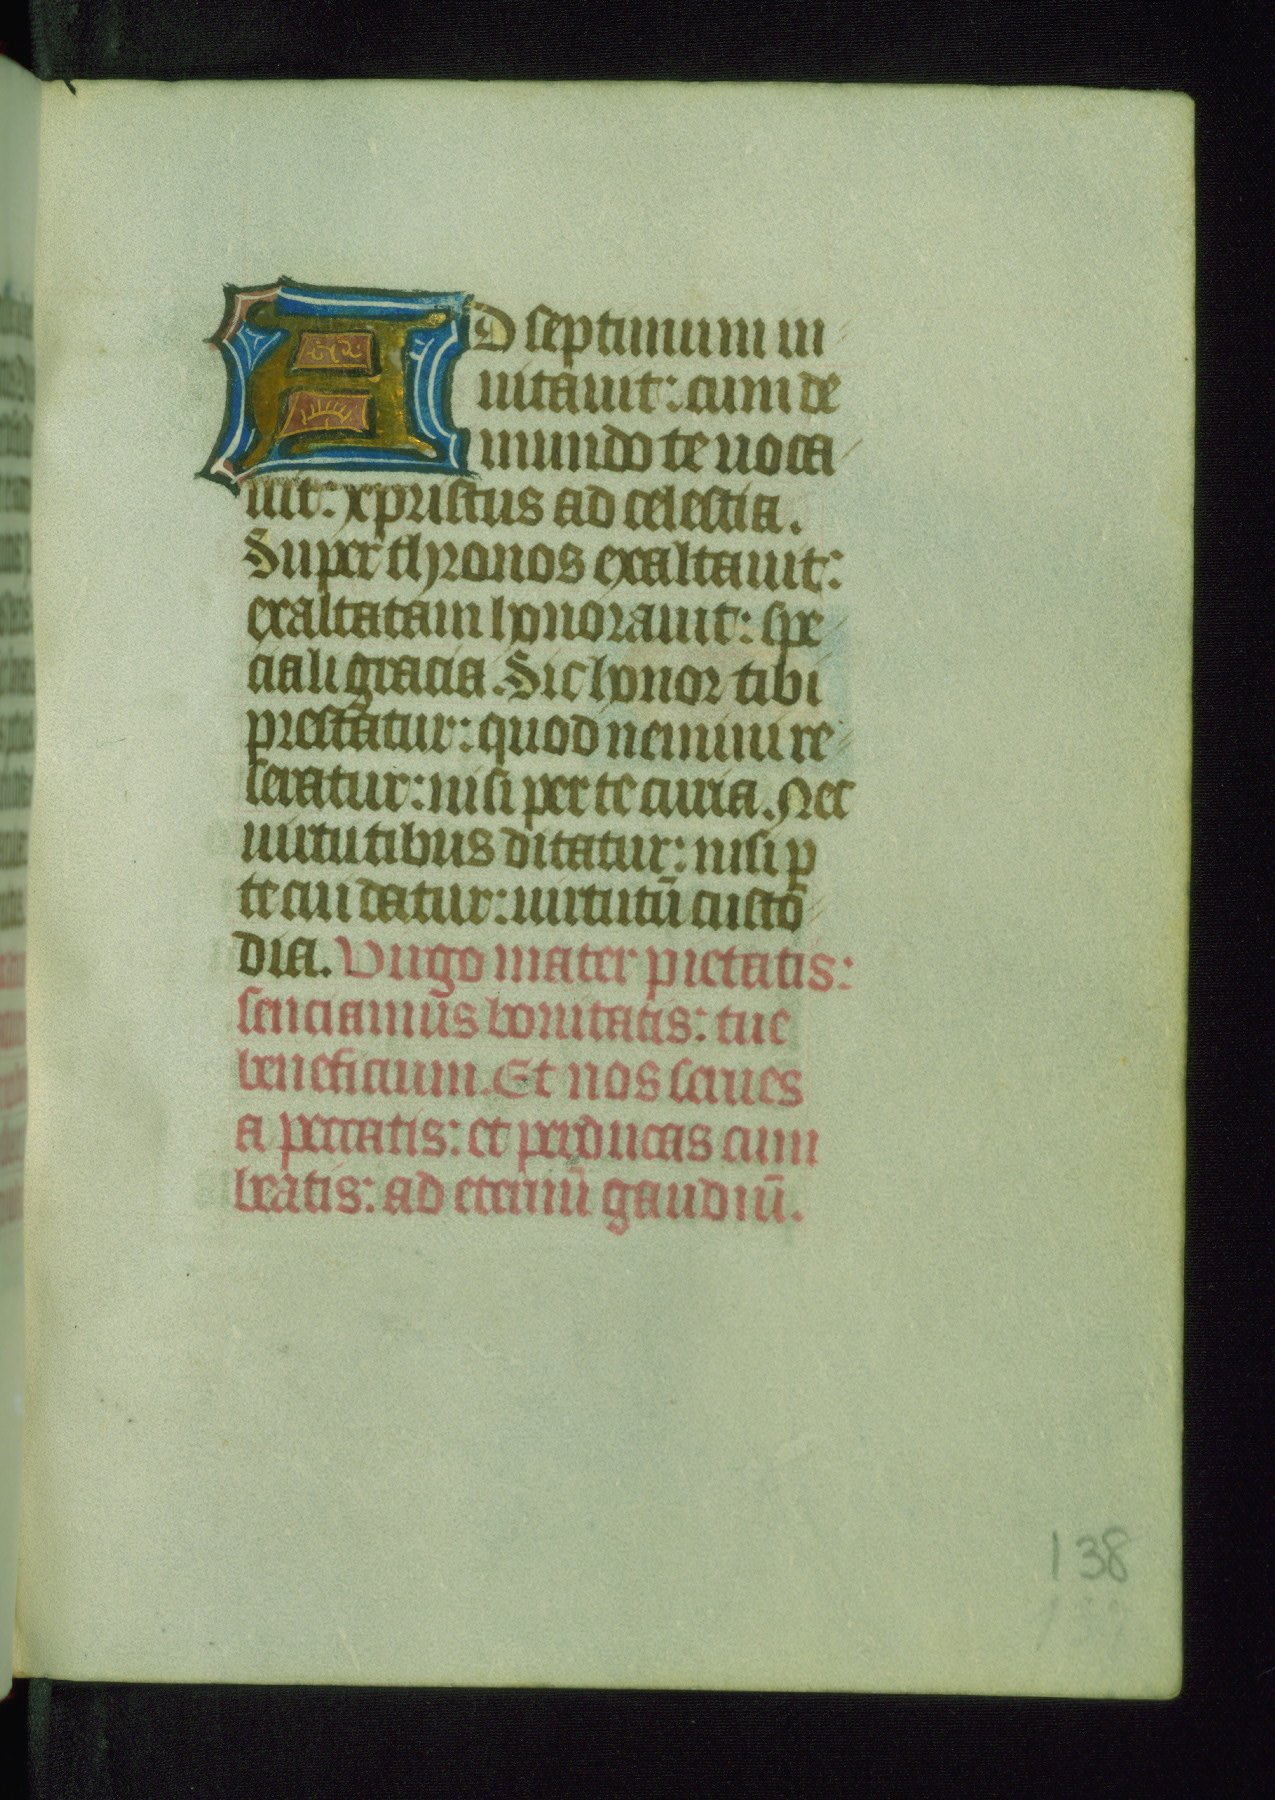 AD septimum in
uitauit: cum de
mundo te uoca
uit: xpristus ad celestia.
Super thronos exaltauit:
exaltatam honorauit: spe
ciali gracia. Sic honor tibi
prestatur: quod nemini re
seratur: nisi per te curia. Nec
uirtutibus ditatur: nisi ꝑ
te cui datur: uirtutū custo
dia. Virgo mater pietatis:
senciamus bonitatis: tue
beneficium. Et nos serues
a peccatis: et perducas cum
beatis: ad eternū gaudiū.
138